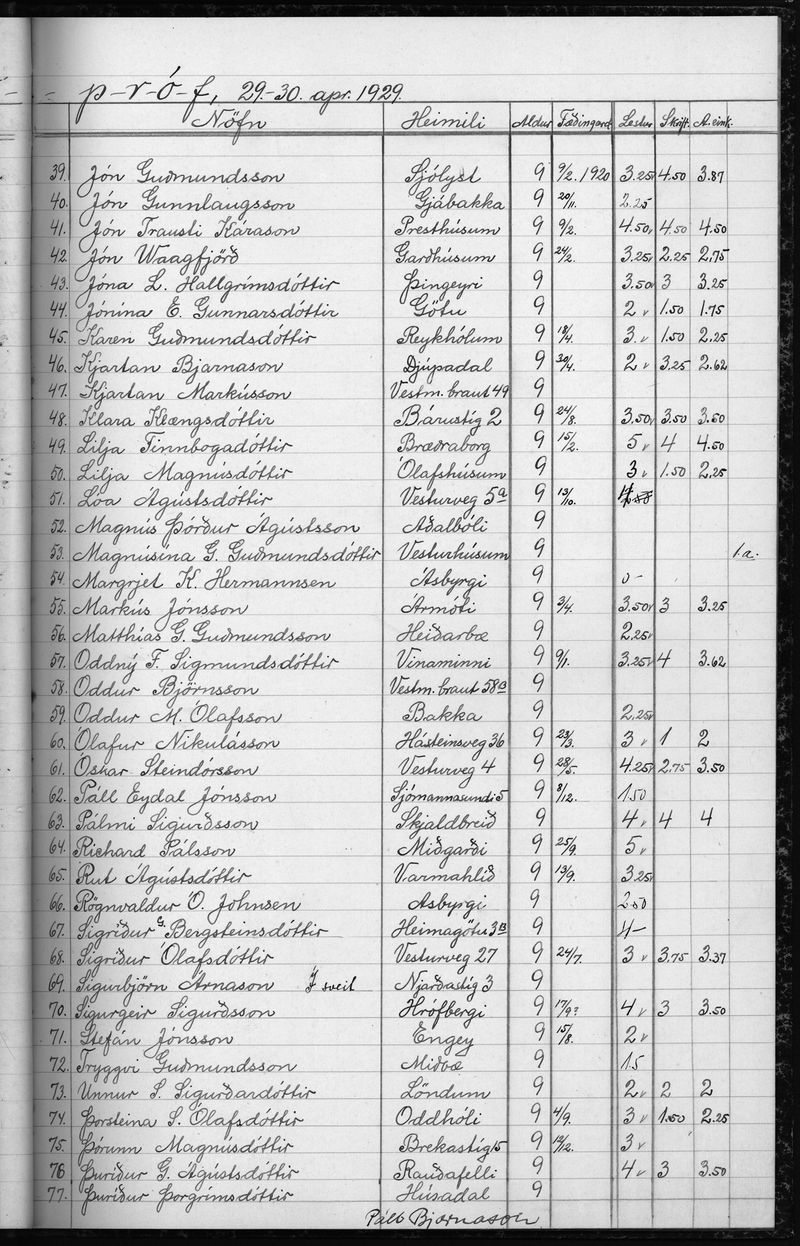 p-r-ó-f, 29.-30. apr. 1929.
Nöfn Heimili Aldur Fæðingard. Lestur Skrift. A.eink.
39. Jón Guðmundsson Sjólyst 9 9/2. 1920 3.25 4.50 3.87
40. Jón Gunnlaugsson Gjábakka 9 20/11. 2.25
41. Jón Trausti Kárason Presthúsum 9 9/2. 4.50 4.50 4.50
42. Jón Waagfjörð Garðhúsum 9 24/2. 3.25 2.25 2.75
43. Jóna L. Hallgrímsdóttir Þingeyri 9 3.50 3 3.25
44. Jónína E. Gunnarsdóttir Götu 9 2 v 1.50 1.75
45. Karen Guðmundsdóttir Reykhólum 9 18/4. 3 v 1.50 2.25
46. Kjartan Bjarnason Djúpadal 9 30/4. 2 v 3.25 2.62
47. Kjartan Markússon Vestm.braut 49 9
48. Klara Klængsdóttir Bárustíg 2 9 24/8. 3.50 v 3.50 3.50
49. Lilja Finnbogadóttir Bræðraborg 9 15/2. 5 v 4 4.50
50. Lilja Magnúsdóttir Ólafshúsum 9 3 v 1.50 2.25
51. Lóa Ágústsdóttir Vesturveg 5a 9 13/10.
52. Magnús Þórður Ágústsson Aðalbóli 9
53. Magnúsína G. Guðmundsdóttir Vesturhúsum 9 1.a.
54. Margrjet K. Hermannsen Ásbyrgi 9 0 -
55. Markús Jónsson Ármóti 9 3/4. 3.50 v 3 3.25
56. Matthías G. Guðmundsson Heiðarbæ 9 2.25 v
57. Oddný F. Sigmundsdóttir Vinaminni 9 9/1. 3.25 v 4 3.62
58. Oddur Björnsson Vestm.braut 58B 9
59. Oddur M. Ólafsson Bakka 9 2.25 v
60. Ólafur Nikulásson Hásteinsveg 36 9 23/3. 3 v 1 2
61. Óskar Steindórsson Vesturveg 4 9 28/5. 4.25 v 2.75 3.50
62. Páll Eydal Jónsson Sjómannasundi 5 9 8/12. 1.50
63. Pálmi Sigurðsson Skjaldbreið 9 4 v 4 4
64. Richard Pálsson Miðgarði 9 25/9. 5 v
65. Rut Ágústsdóttir Varmahlíð 9 13/9. 3.25 v
66. Rögnvaldur Ó. Johnsen Ásbyrgi 9 2.50
67. Sigríður G. Bergsteinsdóttir Heimagötu 3B 9 4 -
68. Sigríður Ólafsdóttir Vesturveg 27 9 24/7. 3 v 3.75 3.37
69. Sigurbjörn Árnason Í sveit Njarðastíg 3 9
70. Sigurgeir Sigurðsson Hrófbergi 9 17/9? 4 v 3 3.50
71. Stefán Jónsson Engey 9 15/8. 2 v
72. Tryggvi Guðmundsson Miðbæ 9 1.5
73. Unnur S. Sigurðardóttir Löndum 9 2 v 2 2
74. Þorsteina S. Ólafsdóttir Oddhóli 9 4/9. 3 v 1.50 2.25
75. Þórunn Magnúsdóttir Brekastíg 15 9 3 v
76 Þuríður G. Ágústsdóttir Rauðafelli 9 4 v 3 3.50
77. Þuríður Þorgrímsdóttir Húsadal 9
Páll Bjarnason